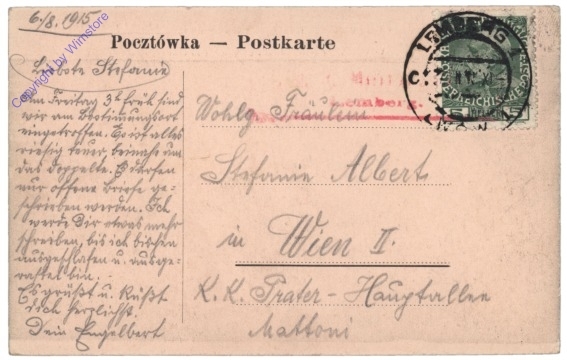 6./8. 1915
Copyright by Wimstore
Pocztówka — Postkarte
Liebste Stefanie
Am Freitag 3h früh sind
wir am Bestimmungsort
eingetroffen. Es ist alles
riesig teuer, beinahe um
das doppelte. Es dürfen
nur offene Briefe ge-
schrieben werden. Ich
werde Dir etwas mehr
schreiben, bis ich bischen
ausgeschlafen u. ausge-
rastet bin.
Es grüßt u. Küßt
dich herzlichst
Dein Engelbert
LEMBERG
LWÓW
Lemberg.
Wohlg. Fräulein
Stefanie Albert
in Wien II.
K. K. Prater-Hauptallee
Mattoni